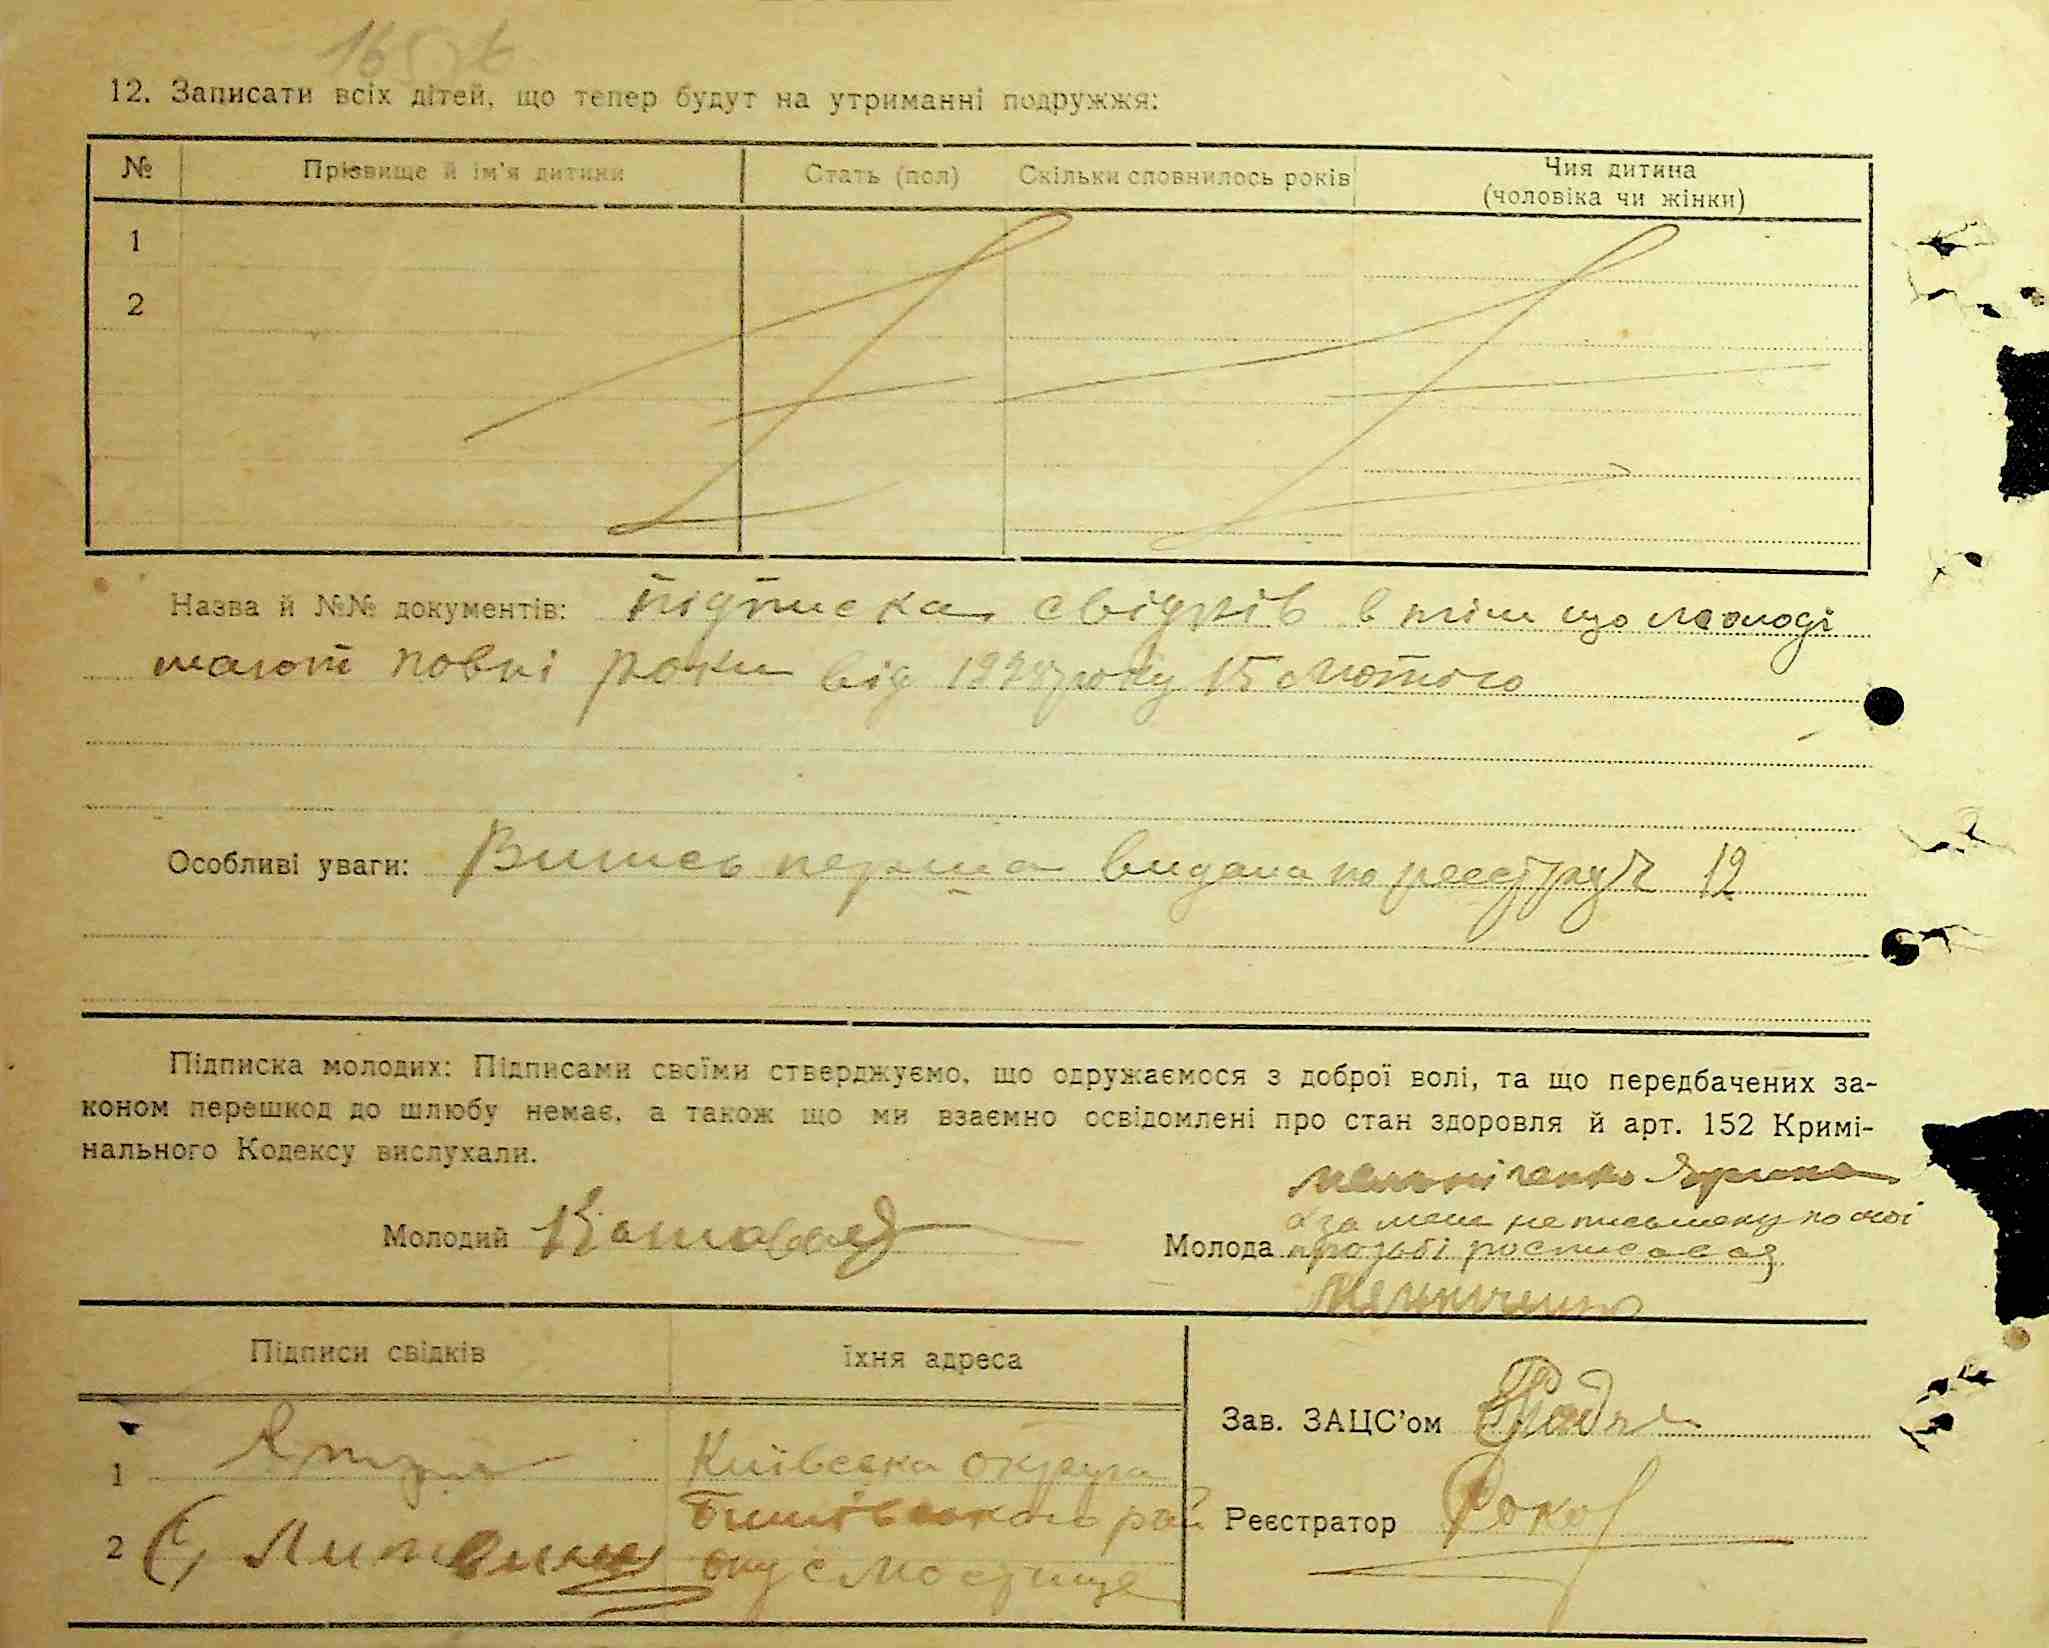 165
12. Записати всіх дітей, що тепер будуть на утриманні подружжя:
№ Прізвище й ім'я дитини Стать (пол) Скільки сповнилось років Чия дитина
(чоловіка чи жінки)
1
2
Назва й №№ документів: підписка свідків в тім що молоді
мають повні роки від 192 року 15 лютого
Особливі уваги: Випись перша видана по реєстру 12
Підписка молодих: Підписами своїми стверджуємо, що одружаємося з доброї волі, та що передбачених за-
коном перешкод до шлюбу немає, а також що ми взаємно освідомлені про стан здоровля й арт. 152 Кримі-
нального Кодексу вислухали.
Мельніченко
Молодий
а за мене неписьмену по мої
Молода прозьбі росписався
Підписи свідків Їхня адреса
Зав. ЗАЦС'ом
1 Київська округа
Реєстратор
2 Литвин
Бишівського рай
ону с Мостище